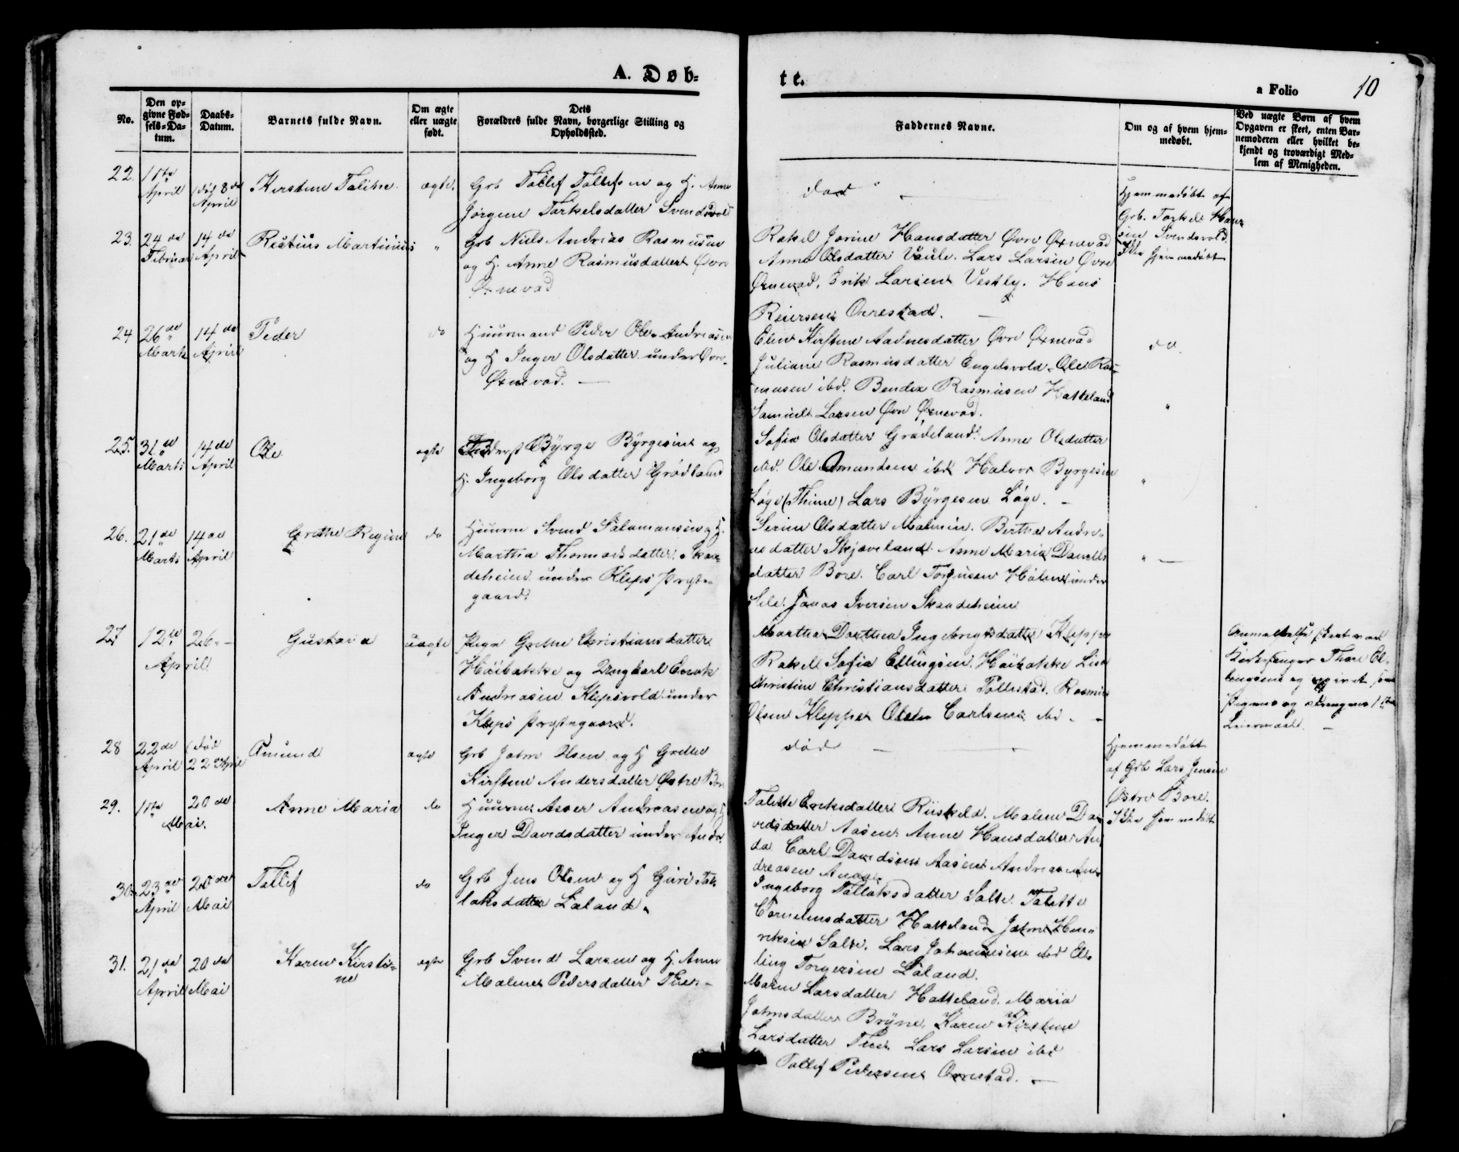 A. Døb-
te.
a Folio
10
No.
Den op-
givne Fød-
sels-Da-
tum.
Daabs-
Datum.
Barnets fulde Navn.
Om ægte
eller uægte
født.
Dets
Forældres fulde Navn, borgerlige Stilling og
Opholdssted.
Faddernes Navne.
Om og af hvem hjem-
medøbt.
Ved uægte Børn af hvem
Opgaven er skeet, enten Bar-
nemoderen eller hvilket be-
kjendt og troværdigt Med-
lem af Menigheden.
22.
April
April
Kirstine Taline
ægte.
Grb Tollef Tollefsen og H. Anne
Jørgine Torkelsdatter Svendsvold
død
Hjemmedøbt af
Grb. Torkel Han-
sen Svendsvold.
23.
24de
Februar
14de
April
Martinius
"
Grb Niels Andrias Rasmusen
og H. Anne Rasmusdatter Øvre
Øxnevad
Rakel Jorine Hansdatter Øvre Øxnevad
Anne Olsdatter Vaule. Lars Larsen Øvre
Øxnevad. Erik Larsen Vestly. Hans
Reiersen Orrestad.
Ikke hjemmedøbt
24
26de
Marts
14de
April
Peder
do
Huusmand Peder Ole Andreasen
og H. Inger Olsdatter under Øvre
Øxnevad.
Elen Kirstine Aadnesdatter Øvre Øxnevad
Juliane Rasmusdatter Engelsvold. Ole Ras-
musen ibd. Bendix Rasmusen Hatteland
Samuel Larsen Øvre Øxnevad.
do.
"
25.
31te
Marts
14de
April
Ole
ægte
Byrge Byrgesen og
H. Ingeborg Olsdatter Grødeland
Sofia Olsdatter Grødeland. Anne Olsdatter
ibd. Ole Omundsen ibd. Halvor Byrgesen
Løge (Thime) Lars Byrgesen Løge.
"
26.
21de
Marts
14de
April
Grethe Regine
do
Huusm Svend Salamonsen og H.
Martha Thomasdatter Skaa-
deheien under Kleps Præste-
gaard.
Serine Olsdatter Malmin. Berthe Andre-
asdatter Skjæveland. Anne Maria Daniels-
datter Bore. Carl Torgusen Holen under
Sele. Jonas Iversen Skaadeheien
"
27
12te
26
April
Gustava
uægte
Pige Grethe Christiansdatter
Høibakke og Ungkarl Enok
Andreasen Klepsvold under
Kleps Præstegaard.
Martha Dorthea Ingebrigtsdatter Kleppe
Rakel Sofia Ellingsen Høibakke. Lise
Christine Christiansdatter Tollestad. Rasmus
Olsen Kleppe Ole Carlsen ibd.
Anmeldelse skeet ved
28
22de
April
død
22 April
Amund
ægte
Grb John Olsen og H Grethe
Kirstine Andersdatter Østre Bore
død
Hjemmedøbt
af Grb Lars Jensen
Østre Bore.
29.
11te
Mai.
20de
Anne Maria
do
Huusm Asser Andreasen og H
Inger Davidsdatter under Anda
Talette Eriksdatter Riiskeld. Malene Da-
vidsdatter Aasen Anne Hansdatter An-
da. Carl Davidsen Aasen Andreas An-
dreasen Anda
Ikke hjemmedøbt
30.
23de
April
20de
Mai
Tollef
do
Grb Jens Olsen og H Guri Tol-
laksdatter Laland.
Ingeborg Tollaksdatter Salte. Talette
Corneliusdatter Hatteland John Hen-
riksen Salte. Lars Johannesen ibd El-
ling Torgersen Laland.
31.
21de
April
20de
Mai
Karen Kirsti-
ne
ægte
Grb Svend Larsen og H. Anne
Malene Pedersdatter Tien
Maren Larsdatter Hatteland. Maria
Johnsdatter Bryne. Karen Kirstine
Larsdatter Tien Lars Larsen ibd
Tollef Pedersen Orrestad.